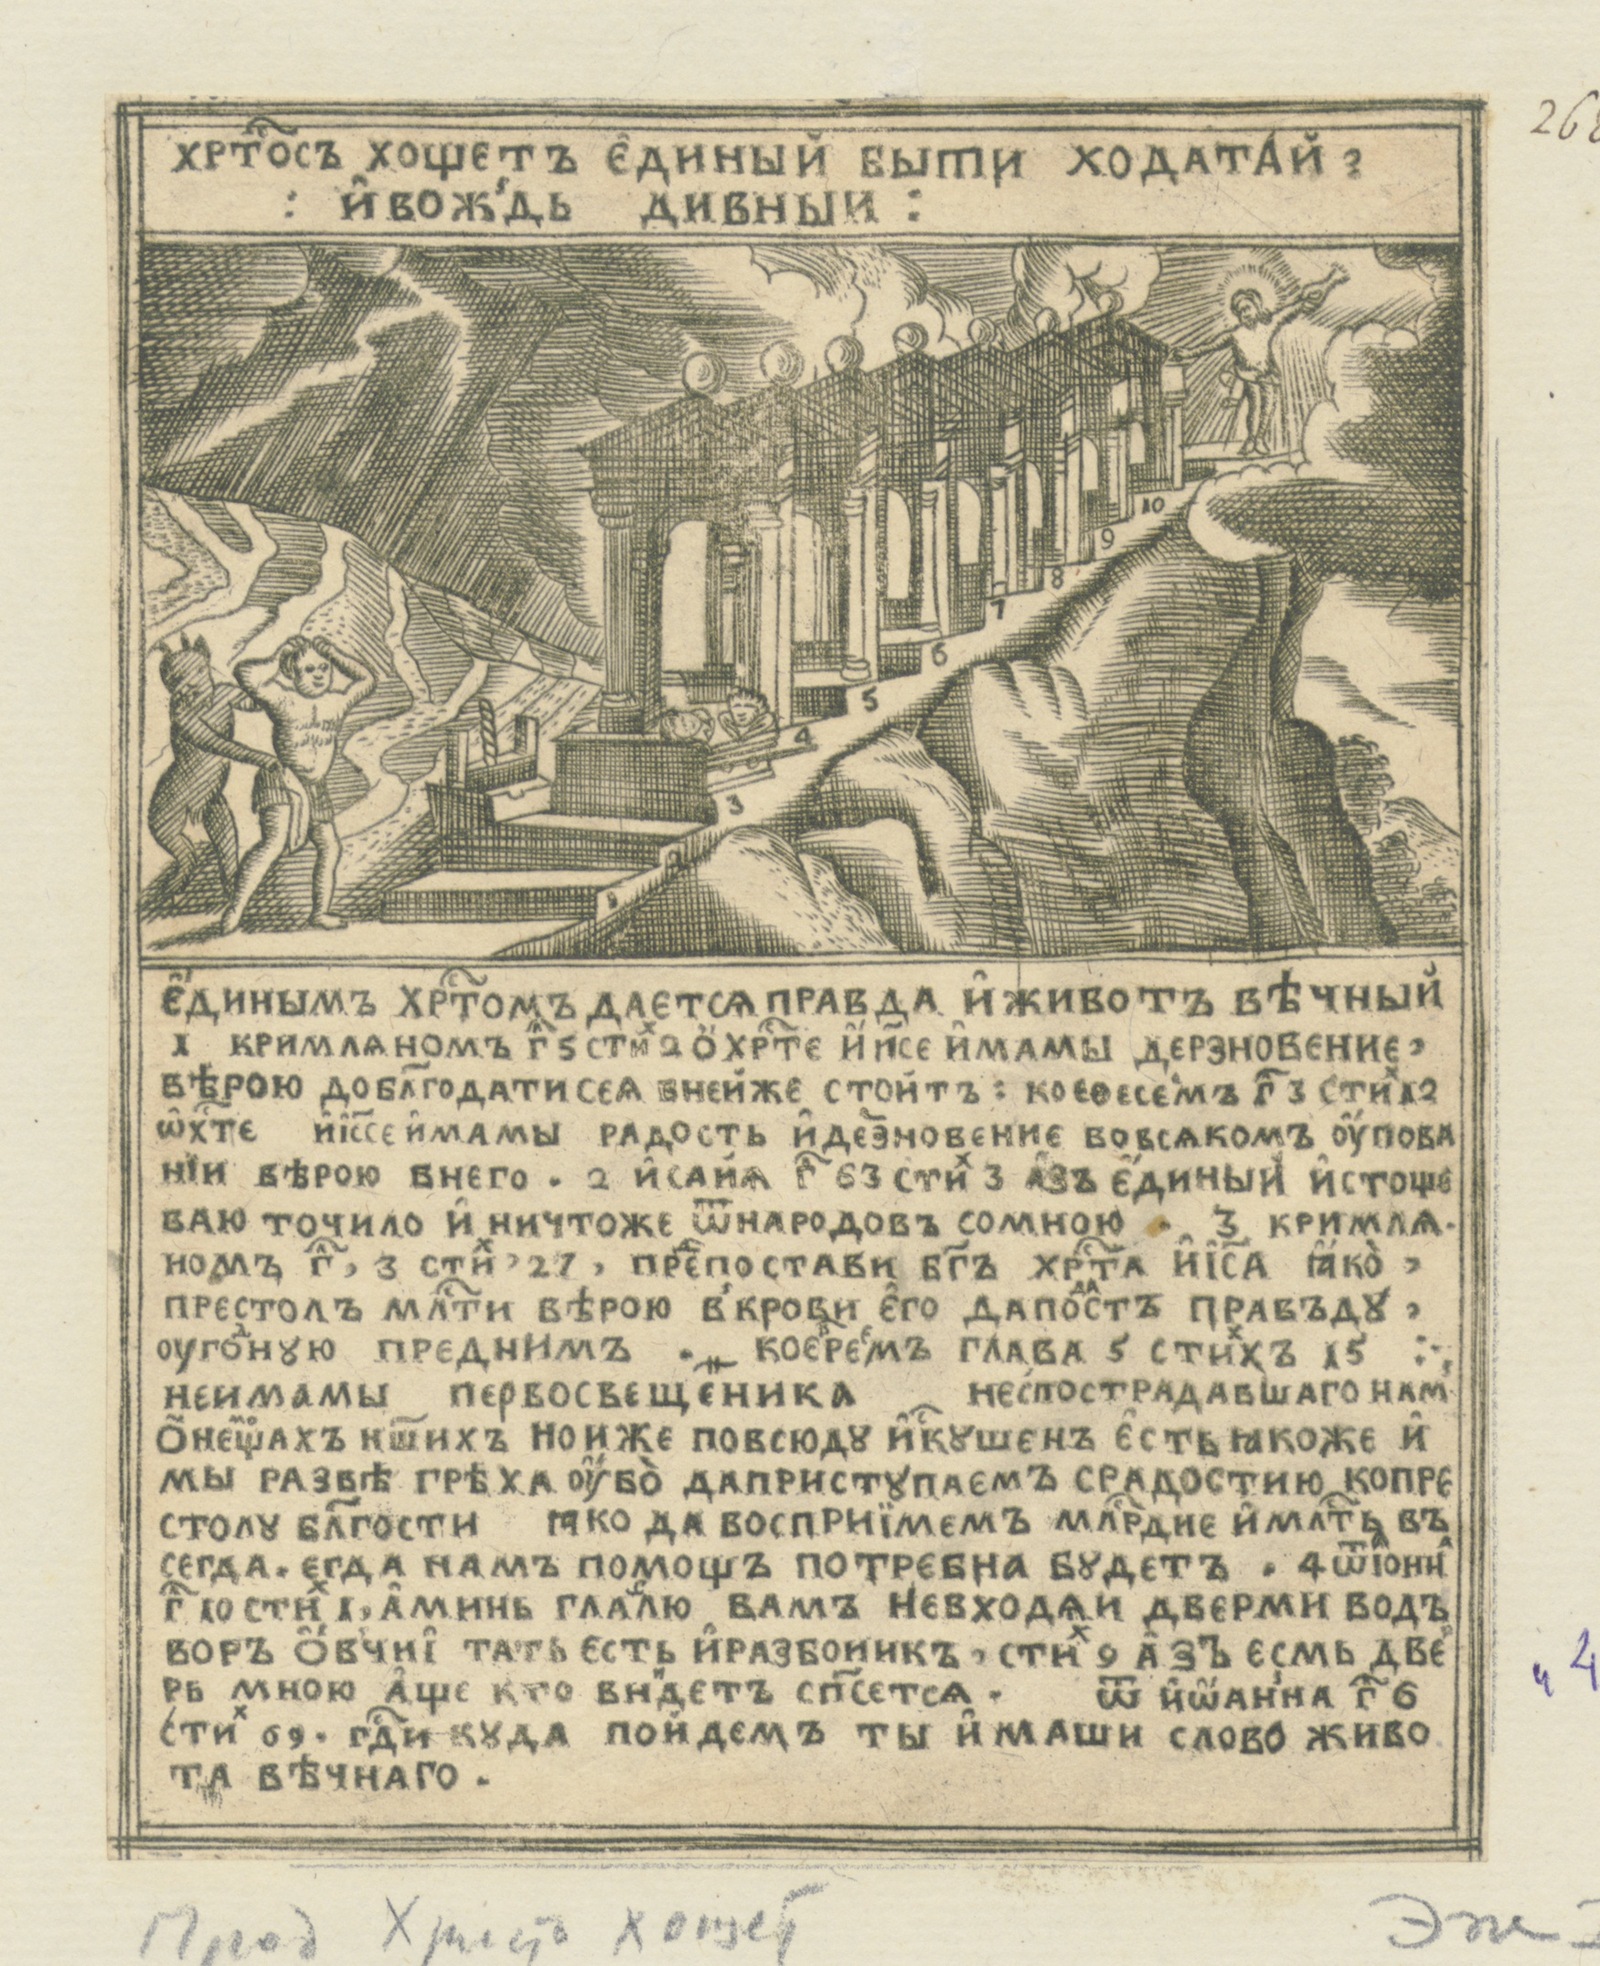 268
ХРТ҇ОСЪ ХОЩЕТЪ Е҆ДИНЫЙ БЫТИ ХОДАТАЙ
: И҆ ВОЖДЬ ДИВНЫИ :
10
9
8
7
6
5
4
3
Е҆ДИНЫМЪ ХРТ҇ОМЪ ДАЕТСѦ ПРАВДА И҆ ЖИВОТЪ ВѢЧНЫЙ
1 КРИМЛѦНОМЪ Г҃Л 5 СТИХ 2 Ѻ ХРТ҇Е И҆ И҃СЕ И҆МАМЫ ДЕРЗНОВЕНИЕ,
ВѢРОЮ ДОБЛ҃ГОДАТИ СЕѦ ВНЕЙЖЕ СТОЙТЪ : КОЕѲЕСЕМЪ Г҃Л 3 СТИХ 12
Ѡ҆ Х҃ТЕ И҆ І҆С҃СЕ И҆МАМЫ РАДОСТЬ И҆ ДЕЗ҃НОВЕНИЕ ВОВСѦКОМЪ ОУ҆ПОВА
НІИ ВѢРОЮ ВНЕГО . 2 И҆САЙѦ Г҃Л 63 СТИХ 3 А҆ЗЪ Е҆ДИНЫЙ И҆СТОЩЕ
ВАЮ ТОЧИЛО И҆ НИЧТОЖЕ Ѿ НАРОДОВЪ СОМНОЮ . 3 КРИМЛѦ.
НОМЪ Г҃Л, 3 СТИХ 27, ПРЕ҃ПОСТАВИ БГ҃Ъ ХРТ҇А И҆ І҆С҃А ꙖКО,
ПРЕСТОЛЪ МЛ҃ТИ ВѢРОЮ В КРОВИ Е҆ГО ДАПОДАСТЪ ПРАВЪДꙊ,
ОУГОДНꙊЮ ПРЕДНИМЪ . КОЕВРЕЕМЪ ГЛАВА 5 СТИХЪ 15 :
НЕИМАМЫ ПЕРВОСВЕЩЕНИКА НЕСПОСТРАДАВШАГО НАМ
Ѻ НЕМОЩАХЪ НШ҃ИХЪ НОИЖЕ ПОВСЮДꙊ И҆СКꙊШЕНЪ Е҆СТЬ ꙖКОЖЕ И҆
МЫ РАЗВѢ ГРѢХА ОУ҆БО ДАПРИСТꙊПАЕМЪ СРАДОСТИЮ КОПРЕ
СТОЛꙊ БЛ҃ГОСТИ ꙖКО ДА ВОСПРИЇМЕМЪ МЛ҃РДИЕ И҆ МЛ҃ТЬ ВЪ
СЕГДА. ЕГДА НАМЪ ПОМОЩЪ ПОТРЕБНА БꙊДЕТЪ . 4 Ѿ ІОННА
Г҃Л 10 СТИХ 1, А҆МИНЬ ГЛАГ҃ЛЮ ВАМЪ НЕВХОДѦИ ДВЕРМИ ВОДЪ
ВОРЪ Ѻ҆ВЧИЇ ТАТЬ ЕСТЬ И҆ РАЗБОИНИКЪ, СТИХ 9 А҆ЗЪ ЕСМЬ ДВЕ
РЬ МНОЮ А҆ЩЕ КТО ВНИДЕТЪ СП҃СЕТСѦ . Ѿ И҆ѠАННА Г҃Л 6
СТИХ 69. ГД҃И КꙊДА ПОЙДЕМЪ ТЫ И҆МАШИ СЛОВО ЖИВО
ТА ВѢЧНАГО .
Христъ хощет